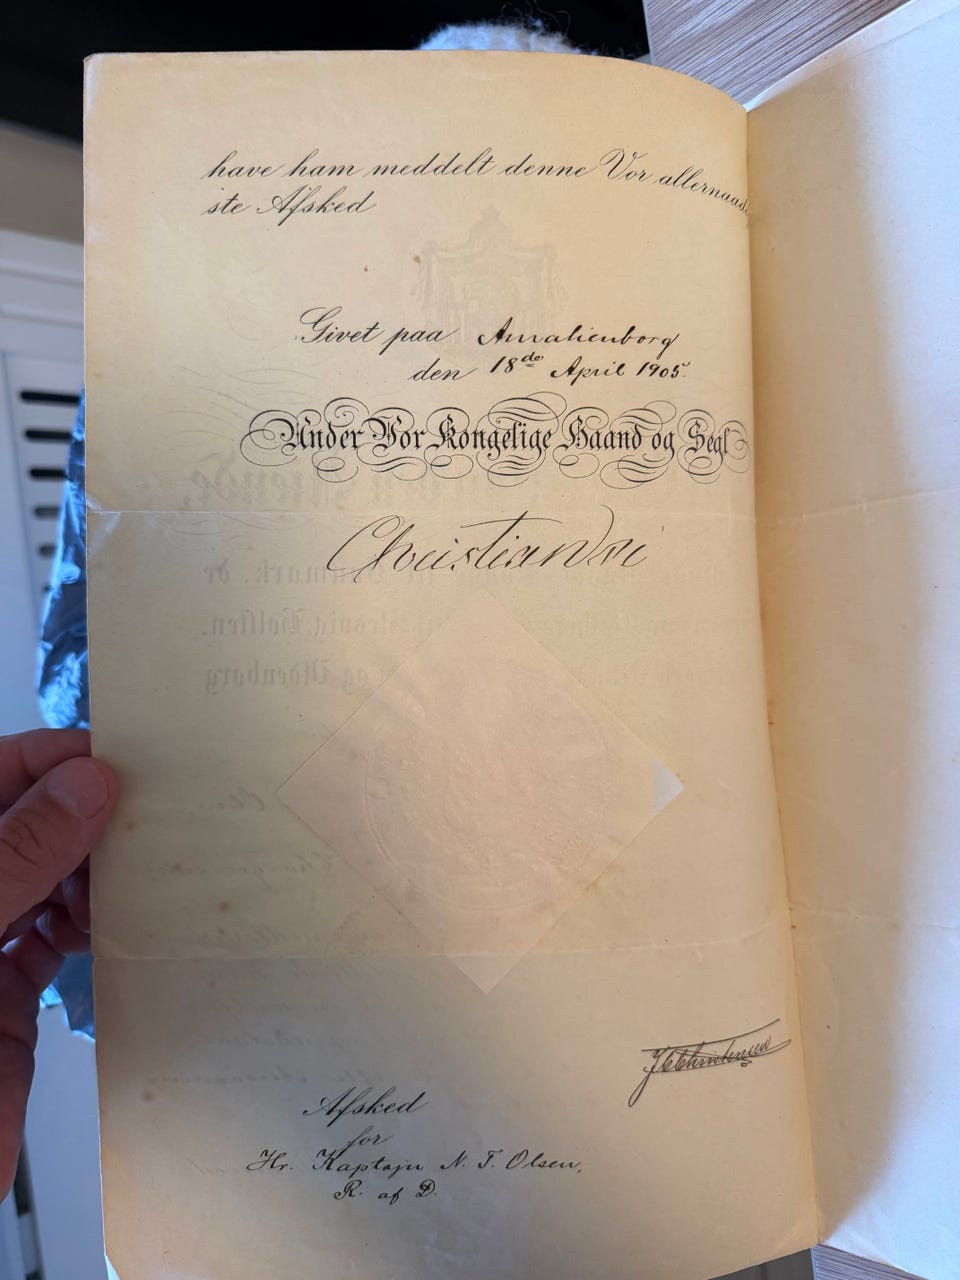 have ham meddelt denne Vor allernaad
ste Afsked
Givet paa Amalienborg
den 18de April 1905.
Under Vor Kongelige Haand og Segl
Christian R
JCChristensen
Afsked
for
Hr. Kaptajn N. T. Olsen,
R. af D.